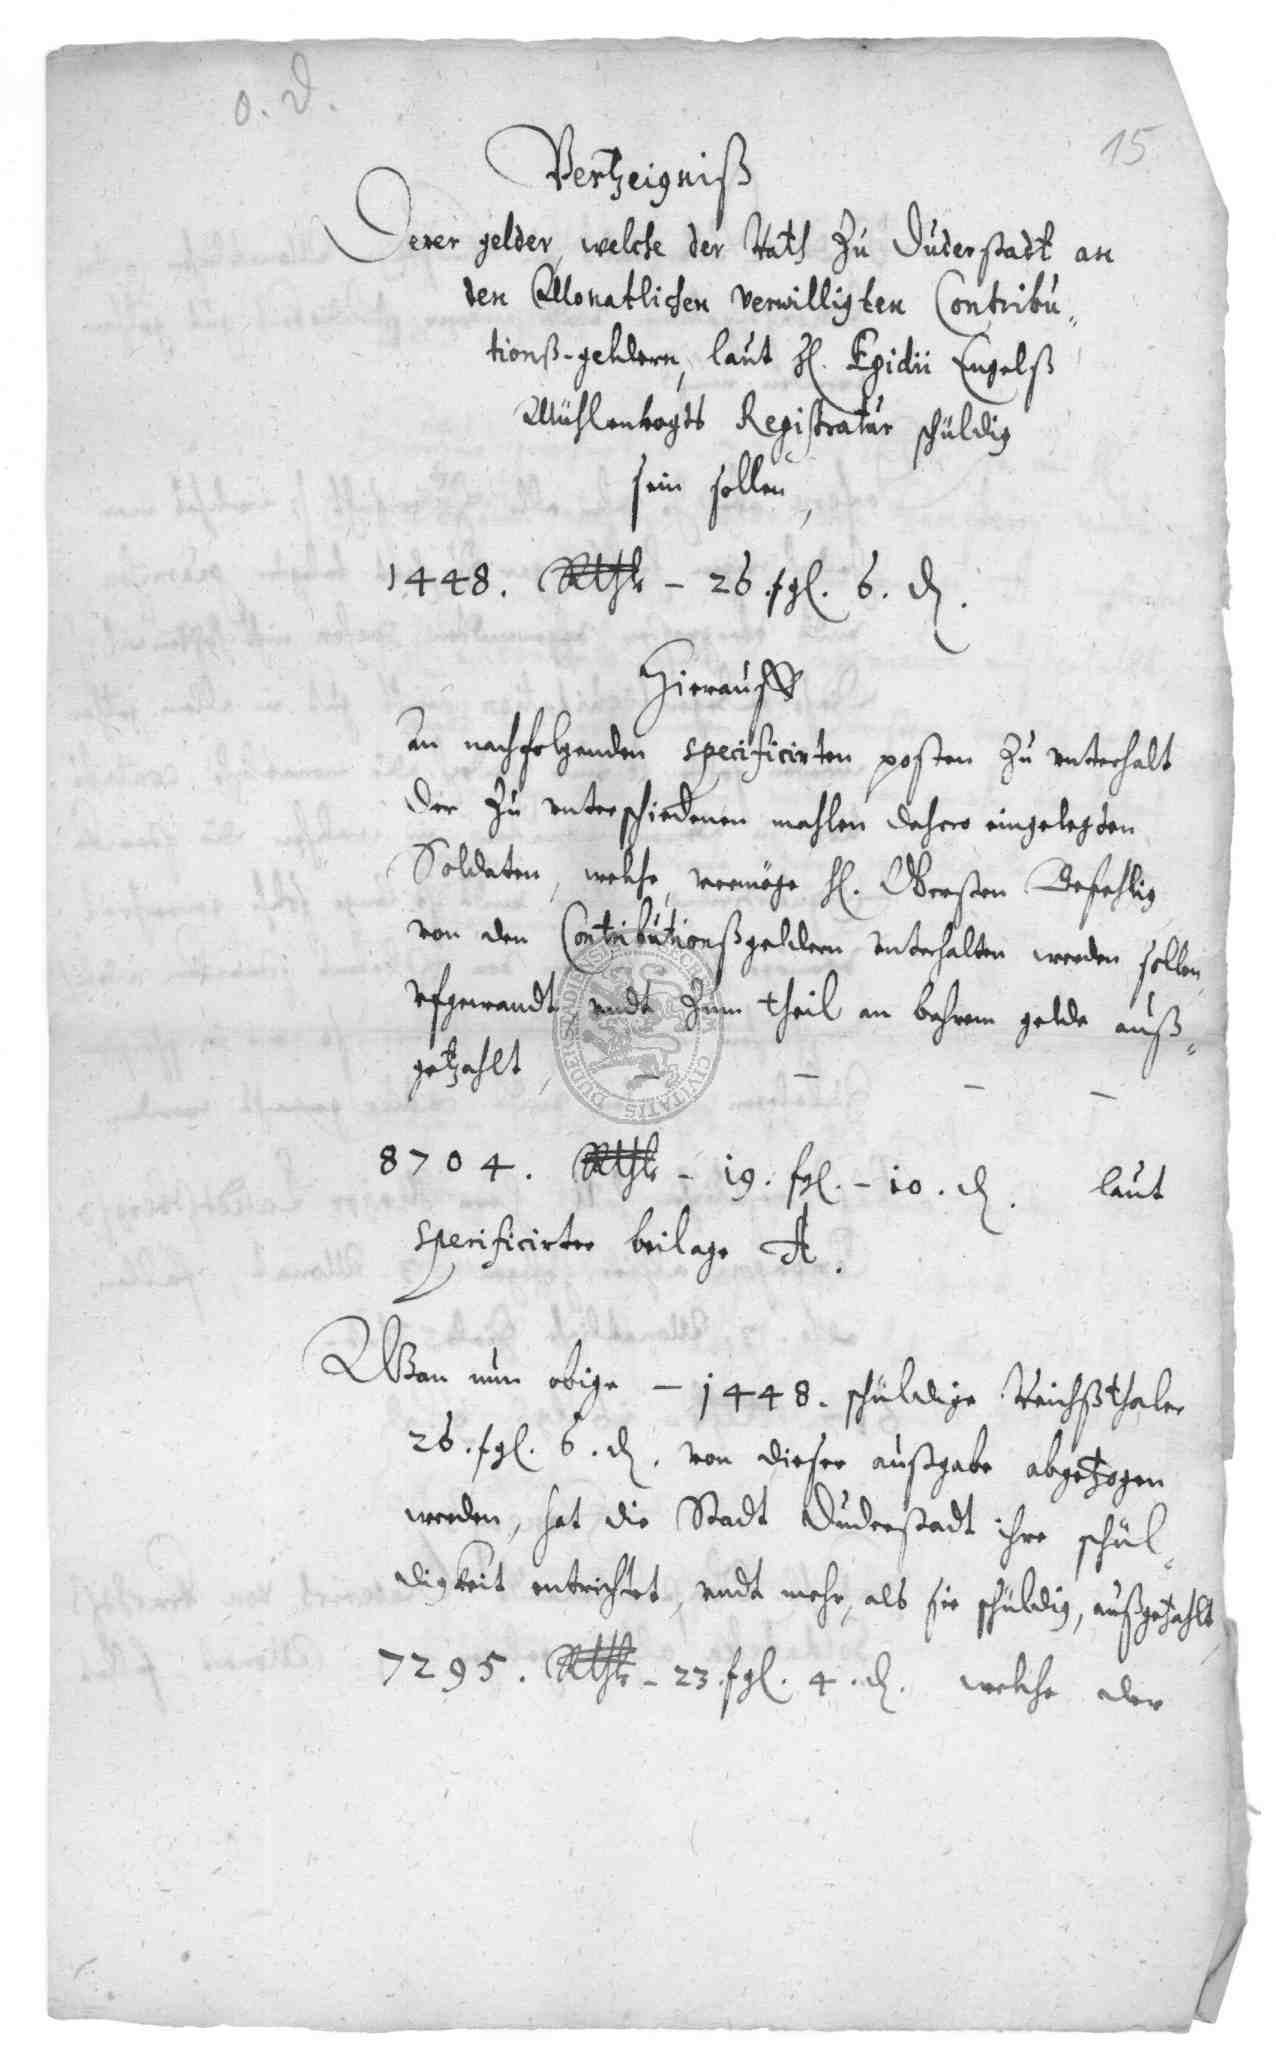 o. D.
15
Vertzeigniß
Derer gelder, welche der Rath Zu Duderstadt an
den Monatlichen verwilligten Contribu„
tionß-geldern, laut H. Egidii Engelß
Mühlenvogts Registratur schüldig
sein sollen,
1448. Rthlr – 26. sgl. 6. d.
Hierauff
An nachfolgenden specificirten posten Zu unterhalt
der Zu unterschiedenen mahlen dahero eingelegden
Soldaten, welche, vermöge H. Obersten Befehlig
von den Contributionßgeldern unterhalten werden sollen,
ufgewandt undt Zum theil an bahrem gelde auß„
getzahlt, – – – –
8704. Rthlr – 19. sgl. – 10. d. laut
specificirter beilage A.
Wan nun obige – 1448. schüldige Reichßthaler
26. sgl. 6. d. von dieser außgabe abgetzogen
werden, hat die Stadt Duderstadt ihre schül„
digkeit entrichtet, undt mehr, als sie schüldig, außgetzahlt
7295. Rthlr – 23. sgl. 4. d. welche der
CIVITATIS DUDERS